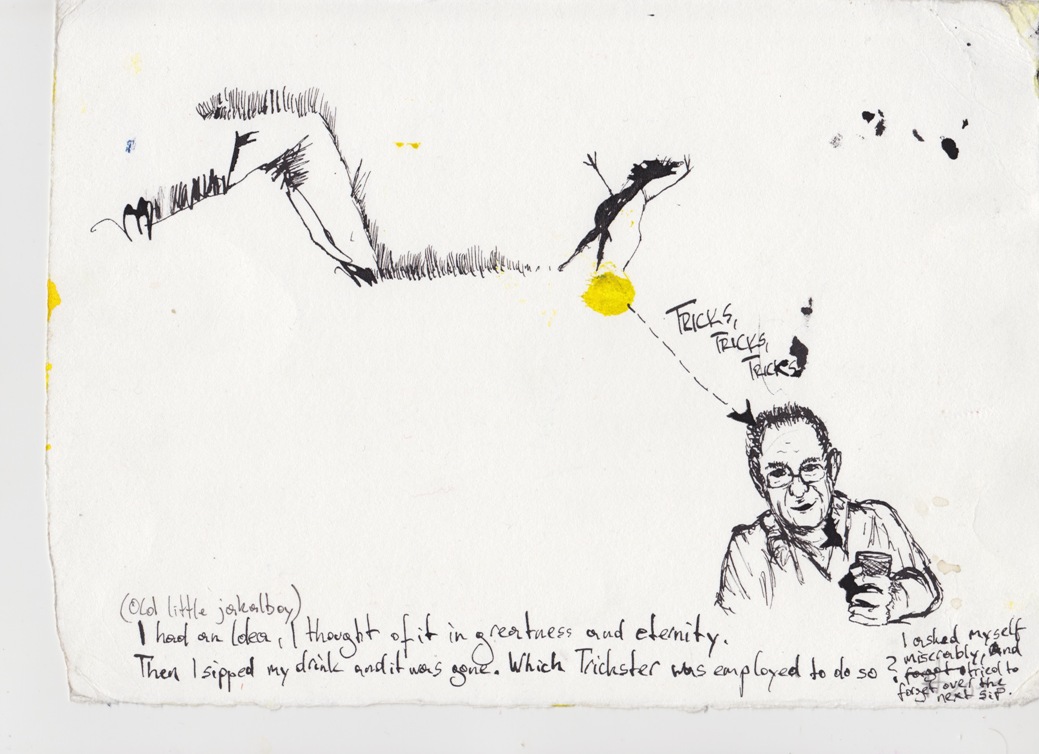 TRICKS,
TRICKS,
TRICKS
(Old little jakalboy)
I had an Idea, I thought of it in greatness and eternity.
Then I sipped my drink and it was gone. Which Trickster was employed to do so ?
I asked myself
miserably, And
forgot tried to
forget over the
next sip.